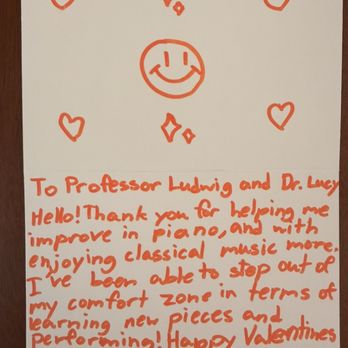 To Professor Ludwig and Dr. Lucy
Hello! Thank you for helping me
improve in piano, and with
enjoying classical music more.
I've been able to stop out of
my comfort zone in terms of
learning new pieces and
performing! Happy Valentines